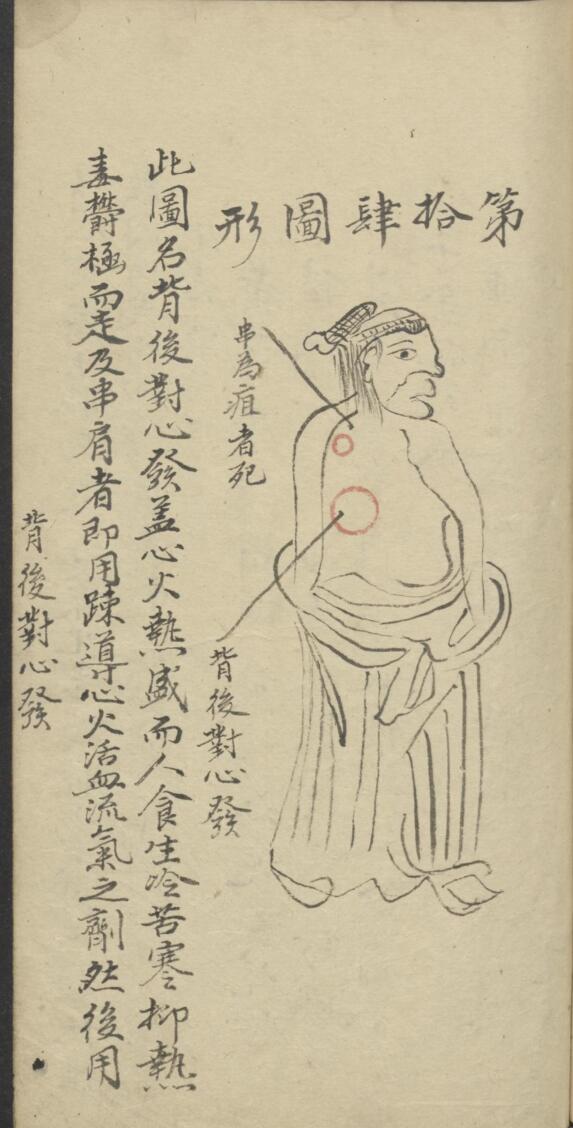 第拾肆圖形
串為疽者死
背後對心發
此圖名背後對心發盖心火熱盛而人食生冷苦寒抑熱
毒欝極而走及串肩者即用踈導心火活血流氣之劑然後用
背後對心發